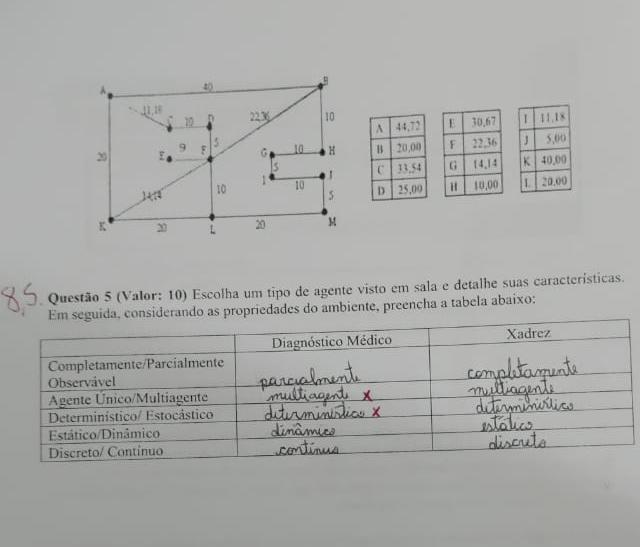 A
40
B
11,18
C
10
D
22,36
10
E
9
F
5
G
10
H
20
5
I
10
J
14,14
10
5
K
20
L
20
M
A 44,72
B 20,00
C 33,54
D 25,00
E 30,67
F 22,36
G 14,14
H 10,00
I 11,18
J 5,00
K 40,00
L 20,00
8,5
Questão 5 (Valor: 10) Escolha um tipo de agente visto em sala e detalhe suas características.
Em seguida, considerando as propriedades do ambiente, preencha a tabela abaixo:
Diagnóstico Médico Xadrez
Completamente/Parcialmente
Observável parcialmente completamente
Agente Único/Multiagente multiagente x multiagente
Determinístico/ Estocástico determinístico x determinístico
Estático/Dinâmico dinâmico estático
Discreto/ Contínuo contínuo discreto